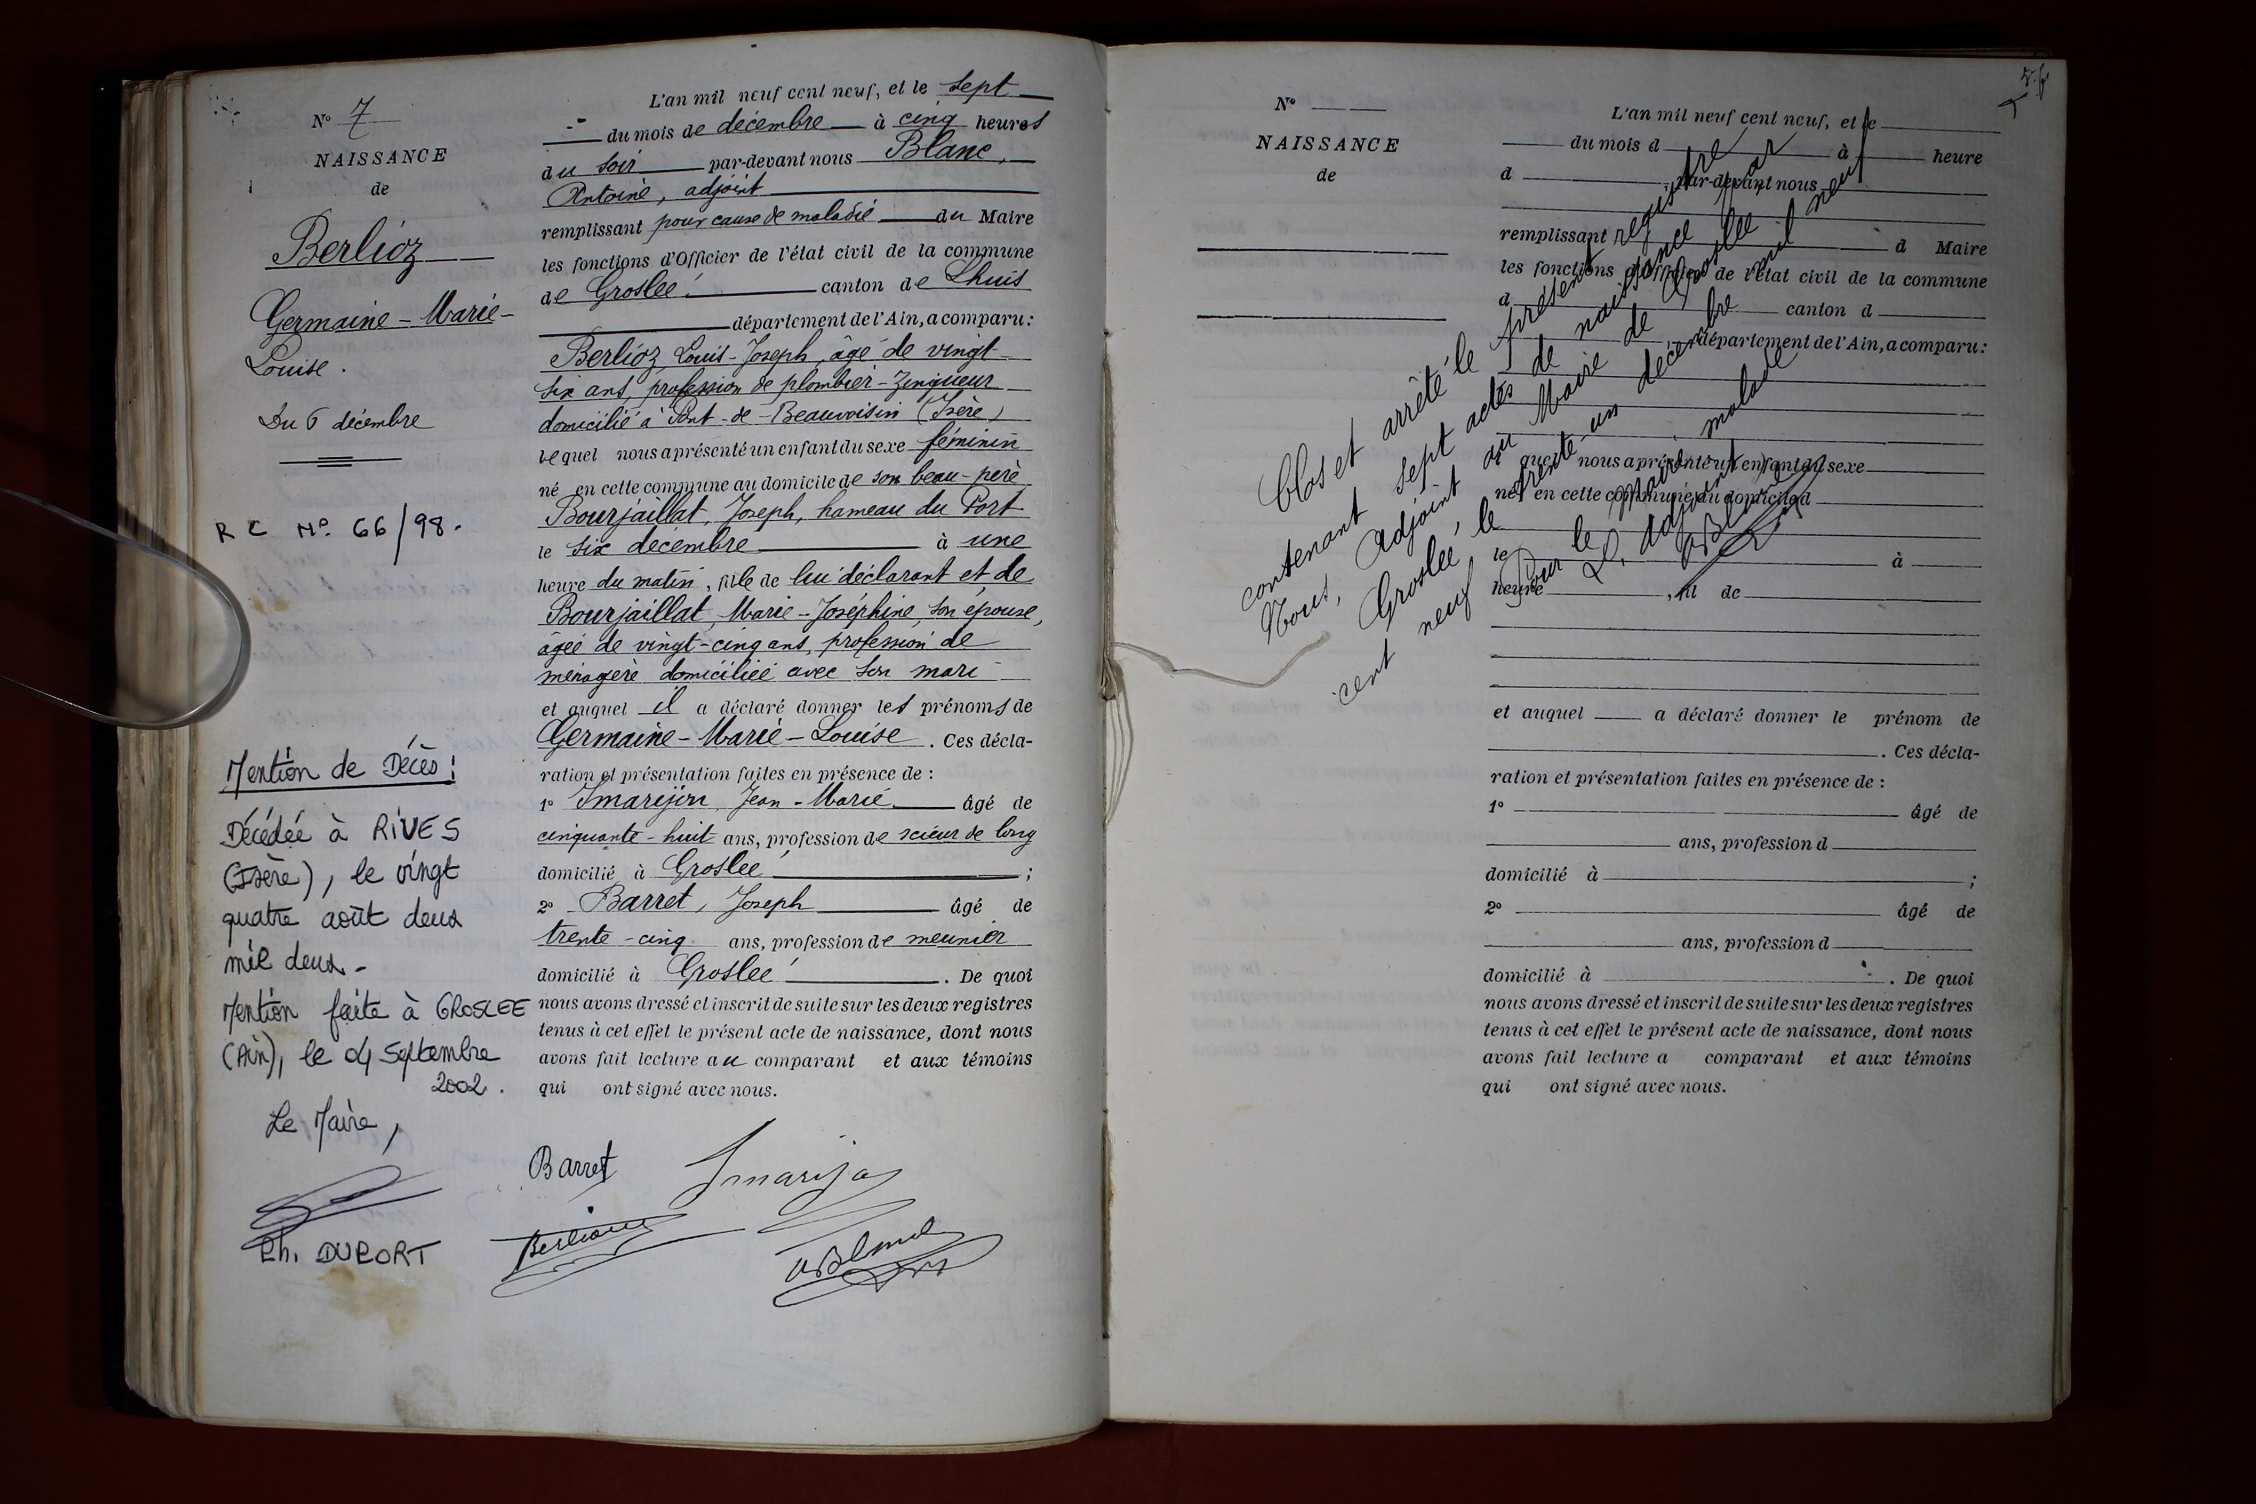 N° 7
NAISSANCE
de
Berlioz
Germaine - Marie -
Louise.
Du 6 décembre
R C N° 66/98.
Mention de Décès :
Décédée à RIVES
(Isère), le vingt
quatre août deux
mil deux -
Mention faite à GROSLEE
(Ain), le 04 Septembre
2002.
Le Maire,
Ph. DUPORT
L'an mil neuf cent neuf, et le sept
du mois de décembre à cinq heures
du soir par-devant nous Blanc,
Antoine, adjoint
remplissant pour cause de maladie du Maire
les fonctions d'Officier de l'état civil de la commune
de Groslée canton de Lhuis
département de l'Ain, a comparu :
Berlioz, Louis-Joseph, âgé de vingt
six ans, profession de plombier-zingueur
domicilié à Pont-de-Beauvoisin (Isère)
lequel nous a présenté un enfant du sexe féminin
né en cette commune au domicile de son beau-père
Bourjaillat, Joseph, hameau du Port
le six décembre à une
heure du matin, fille de lui déclarant et de
Bourjaillat, Marie-Joséphine, son épouse,
âgée de vingt-cinq ans, profession de
ménagère domiciliée avec son mari
et auquel il a déclaré donner les prénoms de
Germaine-Marie-Louise. Ces décla-
ration et présentation faites en présence de :
1° Jean-Marie âgé de
cinquante-huit ans, profession de scieur de long
domicilié à Groslée ;
2° Barret, Joseph âgé de
trente-cinq ans, profession de meunier
domicilié à Groslée. De quoi
nous avons dressé et inscrit de suite sur les deux registres
tenus à cet effet le présent acte de naissance, dont nous
avons fait lecture au comparant et aux témoins
qui ont signé avec nous.
Barret
ABlanc
N°
NAISSANCE
de
L'an mil neuf cent neuf, et le
du mois d à heure
d par-devant nous
remplissant d Maire
les fonctions d'Officier de l'état civil de la commune
d canton d
département de l'Ain, a comparu :
quel nous a présenté un enfant du sexe
né en cette commune au domicile d
le à
heure , fil de
et auquel a déclaré donner le prénom de
. Ces décla-
ration et présentation faites en présence de :
1° âgé de
ans, profession d
domicilié à ;
2° âgé de
ans, profession d
domicilié à . De quoi
nous avons dressé et inscrit de suite sur les deux registres
tenus à cet effet le présent acte de naissance, dont nous
avons fait lecture a comparant et aux témoins
qui ont signé avec nous.
Clos et arrêté le présent registre
contenant sept actes de naissance par
Nous, Adjoint au Maire de Groslée
Groslée, le trente-un décembre mil neuf
cent neuf
Pour le maire malade
L'adjoint
ABlanc